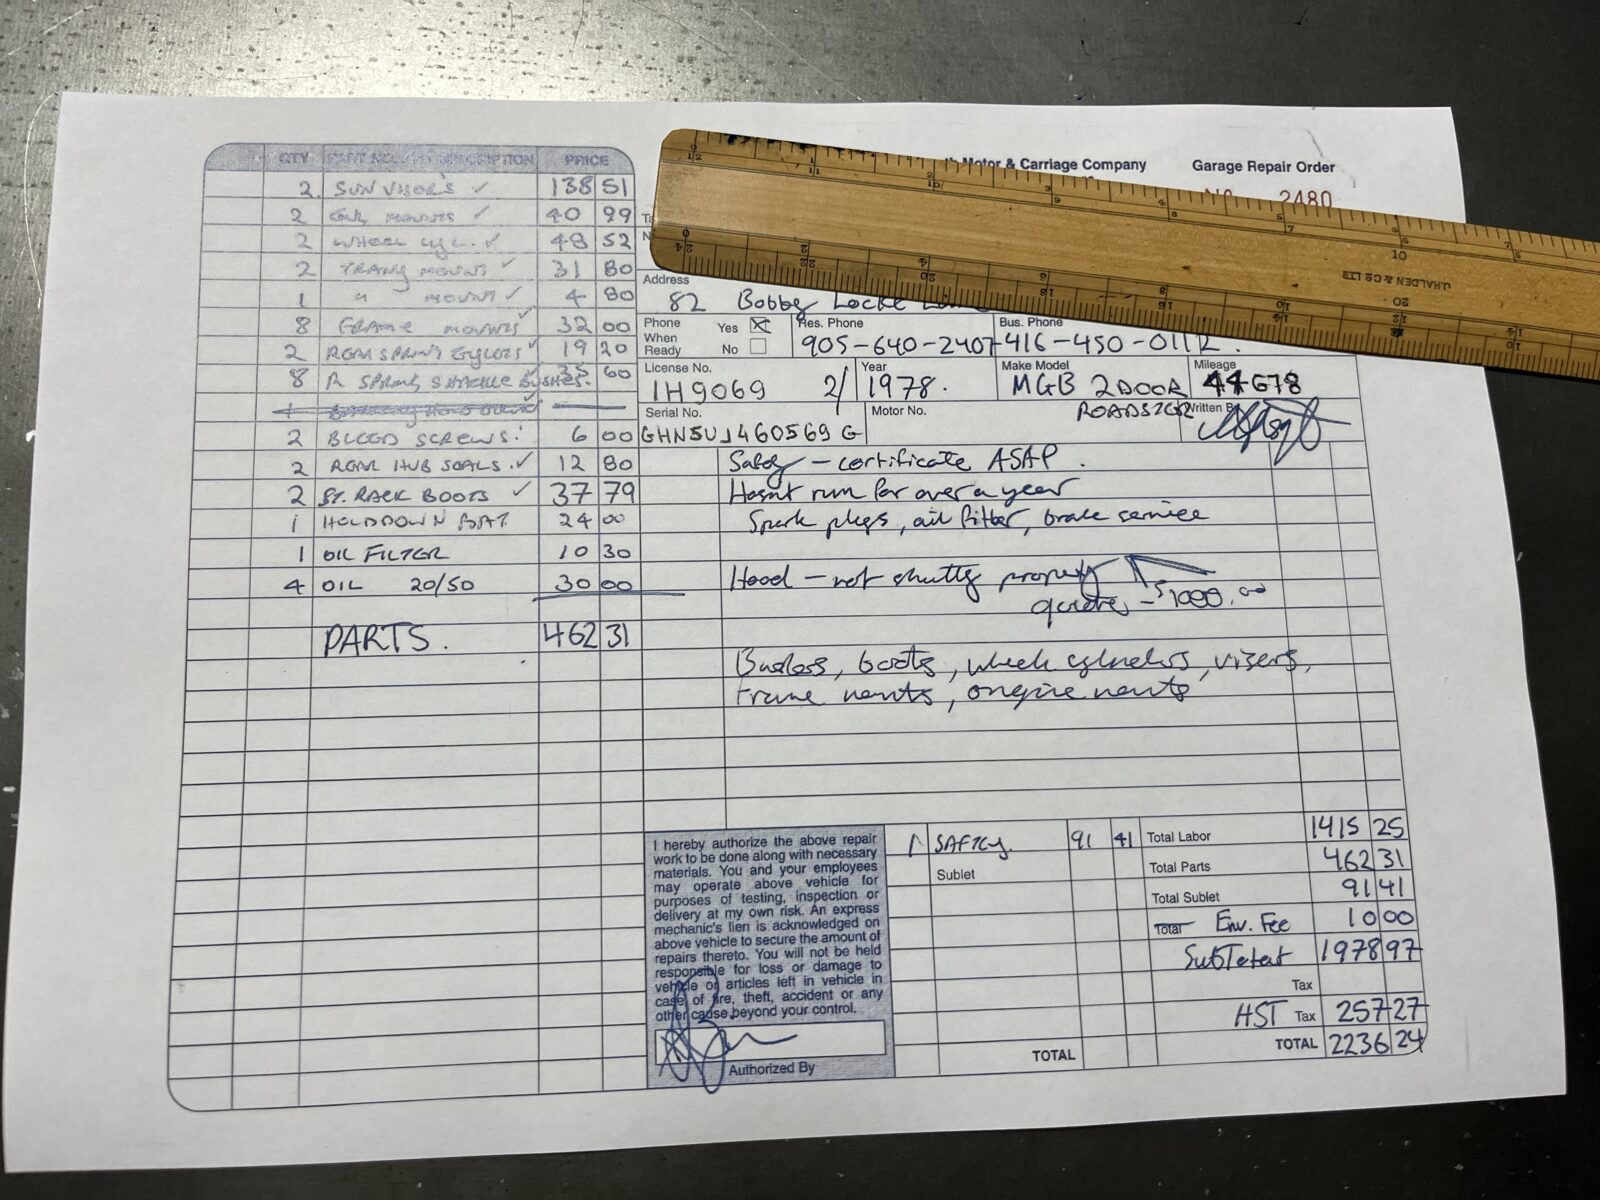 Motor & Carriage Company
Garage Repair Order
2480
QTY PART NO. DESCRIPTION PRICE
2 SUN VISORS ✓ 138 51
2 MOUNTS ✓ 40 99
2 WHEEL CYL. ✓ 48 52
2 TRANS MOUNT ✓ 31 80
1 " MOUNT ✓ 4 80
8 FRAME MOUNTS ✓ 32 00
2 REAR SPRING ✓ 19 20
8 R SPRING SHACKLE BUSHES. 35 60
2 BLEED SCREWS. 6 00
2 REAR HUB SEALS. ✓ 12 80
2 ST. RACK BOOTS ✓ 37 79
1 HOLDDOWN BAT 24 00
1 OIL FILTER 10 30
4 OIL 20/50 30 00
PARTS. 462 31
Address
82 Bobby Locke
Phone When Ready Yes No
Res. Phone
905-640-2407
Bus. Phone
416-450-0112.
License No.
1H9069 2/
Year
1978.
Make Model
MGB 2DOOR
ROADSTER
Mileage
44678
Serial No.
GHN5UJ460569G
Motor No.
Written By
Safety - certificate ASAP.
Hasnt run for over a year
Spark plugs, oil filter, brake service
Hood - not shutting properly
quote - $1000.00
Bushes, boots, wheel cylinders, visors,
frame mounts, engine mounts
I hereby authorize the above repair
work to be done along with necessary
materials. You and your employees
may operate above vehicle for
purposes of testing, inspection or
delivery at my own risk. An express
mechanic's lien is acknowledged on
above vehicle to secure the amount of
repairs thereto. You will not be held
responsible for loss or damage to
vehicle or articles left in vehicle in
case of fire, theft, accident or any
other cause beyond your control.
Authorized By
1 SAFTEY. 91 41
Sublet
TOTAL
Total Labor 1415 25
Total Parts 462 31
Total Sublet 91 41
Total Env. Fee 10 00
SubTotal 1978 97
Tax
HST Tax 257 27
TOTAL 2236 24
J.HALDEN & CO LTD